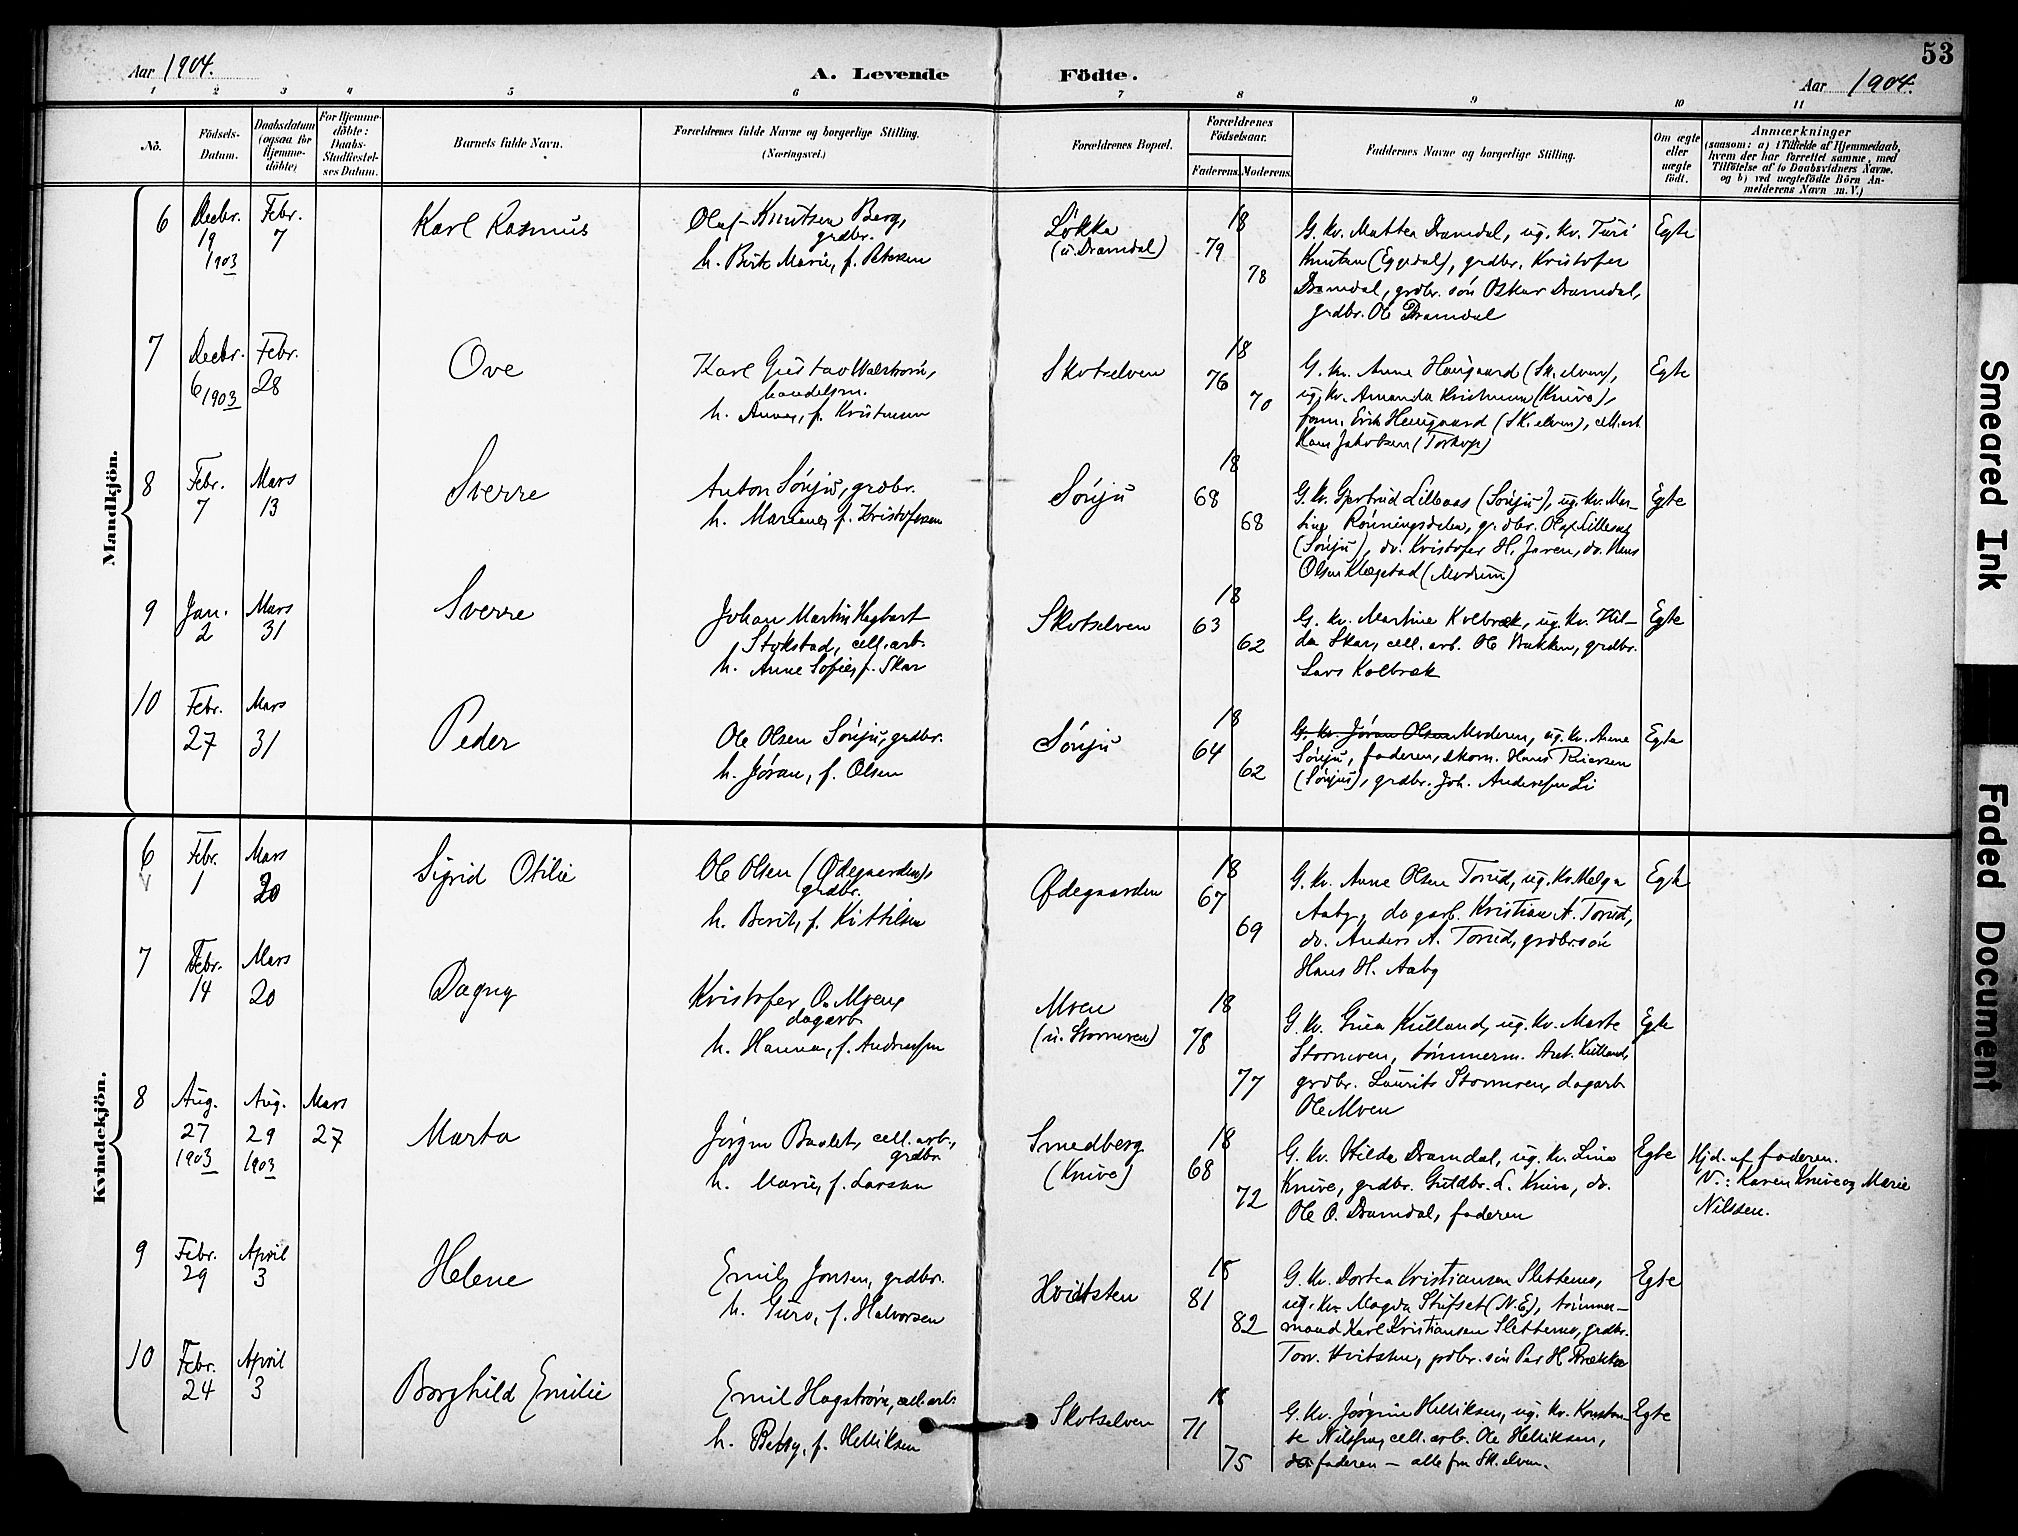 53
Aar 1904. A. Levende Födte. Aar 1904.
1 2 3 4 5 6 7 8 9 10 11
No.
Födsels-
Datum.
Daabsdatum
(ogsaa for
Hjemme-
döbte)
For Hjemme-
döbte:
Daabs-
Stadfæstel-
ses Datum.
Barnets fulde Navn.
Forældrenes fulde Navne og borgerlige Stilling.
(Næringsvei.)
Forældrenes Bopæl.
Forældrenes
Födselsaar.
Faderens. Moderens.
Faddernes Navne og borgerlige Stilling.
Om ægte
eller
uægte
födt.
Anmærkninger
(saasom: a) i Tilfælde af Hjemmedaab,
hvem der har forrettet samme, med
Tilföielse af to Daabsvidners Navne.
og b) ved uægtefödte Börn An-
melderens Navn m. V.)
Mandkjön.
6 Decbr. 19 1903 Febr. 7 Karl Rasmus
Olaf Knutsen Berg,
grdbr.
h. Berte Marie, f. Petersen
Løkka
(u. Dramdal)
18 79 78
G. kv. Mathea Dramdal, ug. kv. Turi
Knutsen (Eggedal), grdbr. Kristofer
Dramdal, grdbr. søn Oskar Dramdal,
grdbr. Ole Dramdal
Egte
7 Decbr. 6 1903 Febr. 28 Ove
Karl Gustav Walstrøm,
handelsm.
h. Anna, f. Kristensen
Skotselven
18 76 70
G. kv. Anne Haugaard (Sk.elven),
ug. kv. Amanda Kristensen (Knive),
form. Erik Haugaard (Sk.elven), cell.arb.
Hans Jakobsen (Torkop)
Egte
8 Febr. 7 Mars 13 Sverre
Anton Sønju, grdbr.
h. Mariane, f. Kristofersen
Sønju
18 68 68
G. kv. Gertrud Lilleaas (Sønju), ug. kv. Mar-
tine Rønningsdalen, grdbr. Olaf Lilleaas
(Sønju), do. Kristofer H. Jaren, do. Hans
Olsen Klægstad (Modum)
Egte
9 Jan. 2 Mars 31 Sverre
Johan Martin Hagbart
Stokstad, cell.arb.
h. Anne Sofie, f. Skar
Skotselven
18 63 62
G. kv. Martine Kolbræk, ug. kv. Hil-
da Skar, cell.arb. Ole Bakken, grdbr.
Lars Kolbræk
Egte
10 Febr. 27 Mars 31 Peder
Ole Olsen Sønju, grdbr.
h. Jøran, f. Olsen
Sønju
18 64 62
G. kv. Jøran Olsen Moderen, ug. kv. Anne
Sønju, faderen, skom. Hans
(Sønju), grdbr. Joh. Andersen Li
Egte
Kvindekjön.
6 Febr. 1 Mars 20 Sigrid Otilie
Ole Olsen (Ødegaarden),
grdbr.
h. Berit, f. Kittilsen
Ødegaarden
18 67 69
G. kv. Anne Olsen Torud, ug. kv. Helga
Aaby, dagarb. Kristian A. Torud,
do. Anders A. Torud, grdbr.søn
Hans H. Aaby
Egte
7 Febr. 14 Mars 20 Dagny
Kristofer O. Moen,
dagarb.
h. Hanna, f. Andersen
Moen
(u. Stormoen)
18 78 77
G. kv. Gina Kulland, ug. kv. Marte
Stormoen, tømmerm. Ant. Kulland,
grdbr. Laurits Stormoen, dagarb.
Ole Moen
Egte
8 Aug. 27 1903 Aug. 29 1903 Mars 27 Marta
Jørgen Baalet, cell.arb.,
grdbr.
h. Marie, f. Larsen
Smedberg
(Knive)
18 68 72
G. kv. Hilda Dramdal, ug. kv. Lina
Knive, grdbr. Guldbr. L. Knive, do.
Ole O. Dramdal, faderen
Egte
Hjd. af faderen.
V.: Karen Knive og Marie
Nilssen.
9 Febr. 29 April 3 Helene
Emil Jonsen, grdbr.
h. Guro, f. Halvorsen
Hvidtsten
18 81 82
G. kv. Dortea Kristiansen Slettemo,
ug. kv. Magda Stufset (N.E), tømmer-
mand Karl Kristiansen Slettemo, grdbr.
Torv. Hvitsten, grdbr. søn Per H. Brække
Egte
10 Febr. 24 April 3 Borghild Emilie
Emil Hagstrøm, cell.arb.
h. Betsy, f. Helliksen
Skotselven
18 71 75
G. kv. Jørgine Helliksen, ug. kv. Konstan-
se Nilssen, cell.arb. Ole Helliksen,
faderen – alle fra Sk.elven.
Egte
Smeared Ink
Faded Document